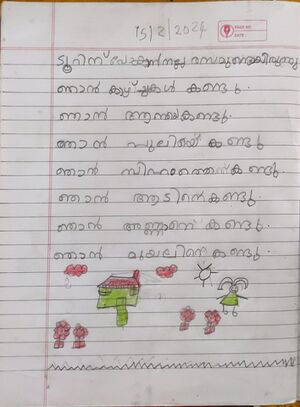 15/2/2024
PAGE NO.
DATE:
ടൂറിന് പോകാൻ നല്ല രസമുണ്ടായിരുന്നു
ഞാൻ കാഴ്ച്ചകൾ കണ്ടു.
ഞാൻ ആനയെ കണ്ടു.
ഞാൻ പുലിയെ കണ്ടു
ഞാൻ സിംഹത്തെ കണ്ടു.
ഞാൻ ആടിനെ കണ്ടു.
ഞാൻ അണ്ണാനെ കണ്ടു.
ഞാൻ മുയലിനെ കണ്ടു.